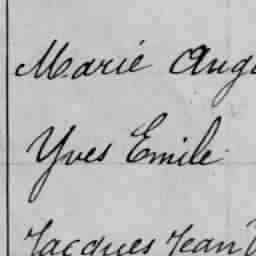 Marie Aug
Yves Emile
Jacques Jean